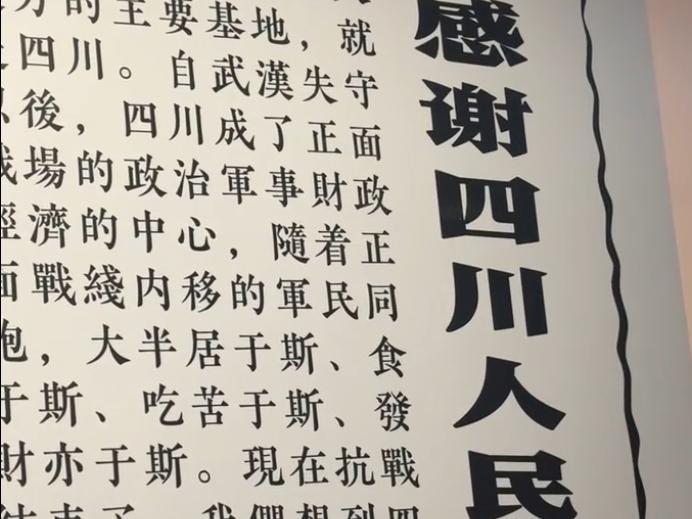 感谢四川人民
方的主要基地，就
是四川。自武漢失守
以後，四川成了正面
戰場的政治軍事財政
經濟的中心，隨着正
面戰綫内移的軍民同
胞，大半居于斯、食
于斯、吃苦于斯、發
財亦于斯。現在抗戰
結束了，我們想到四